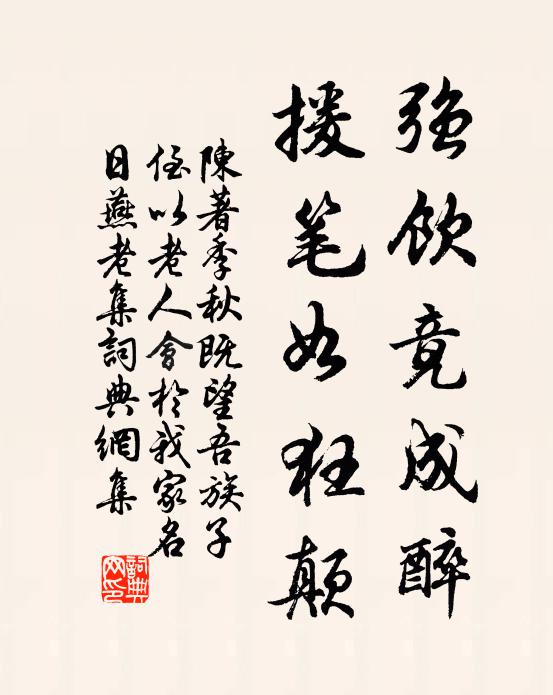 强饮竟成醉
援笔如狂颠
陳著季秋既望吾族子
侄以老人會於我家名
日燕老集詞典網集
詞典
网印